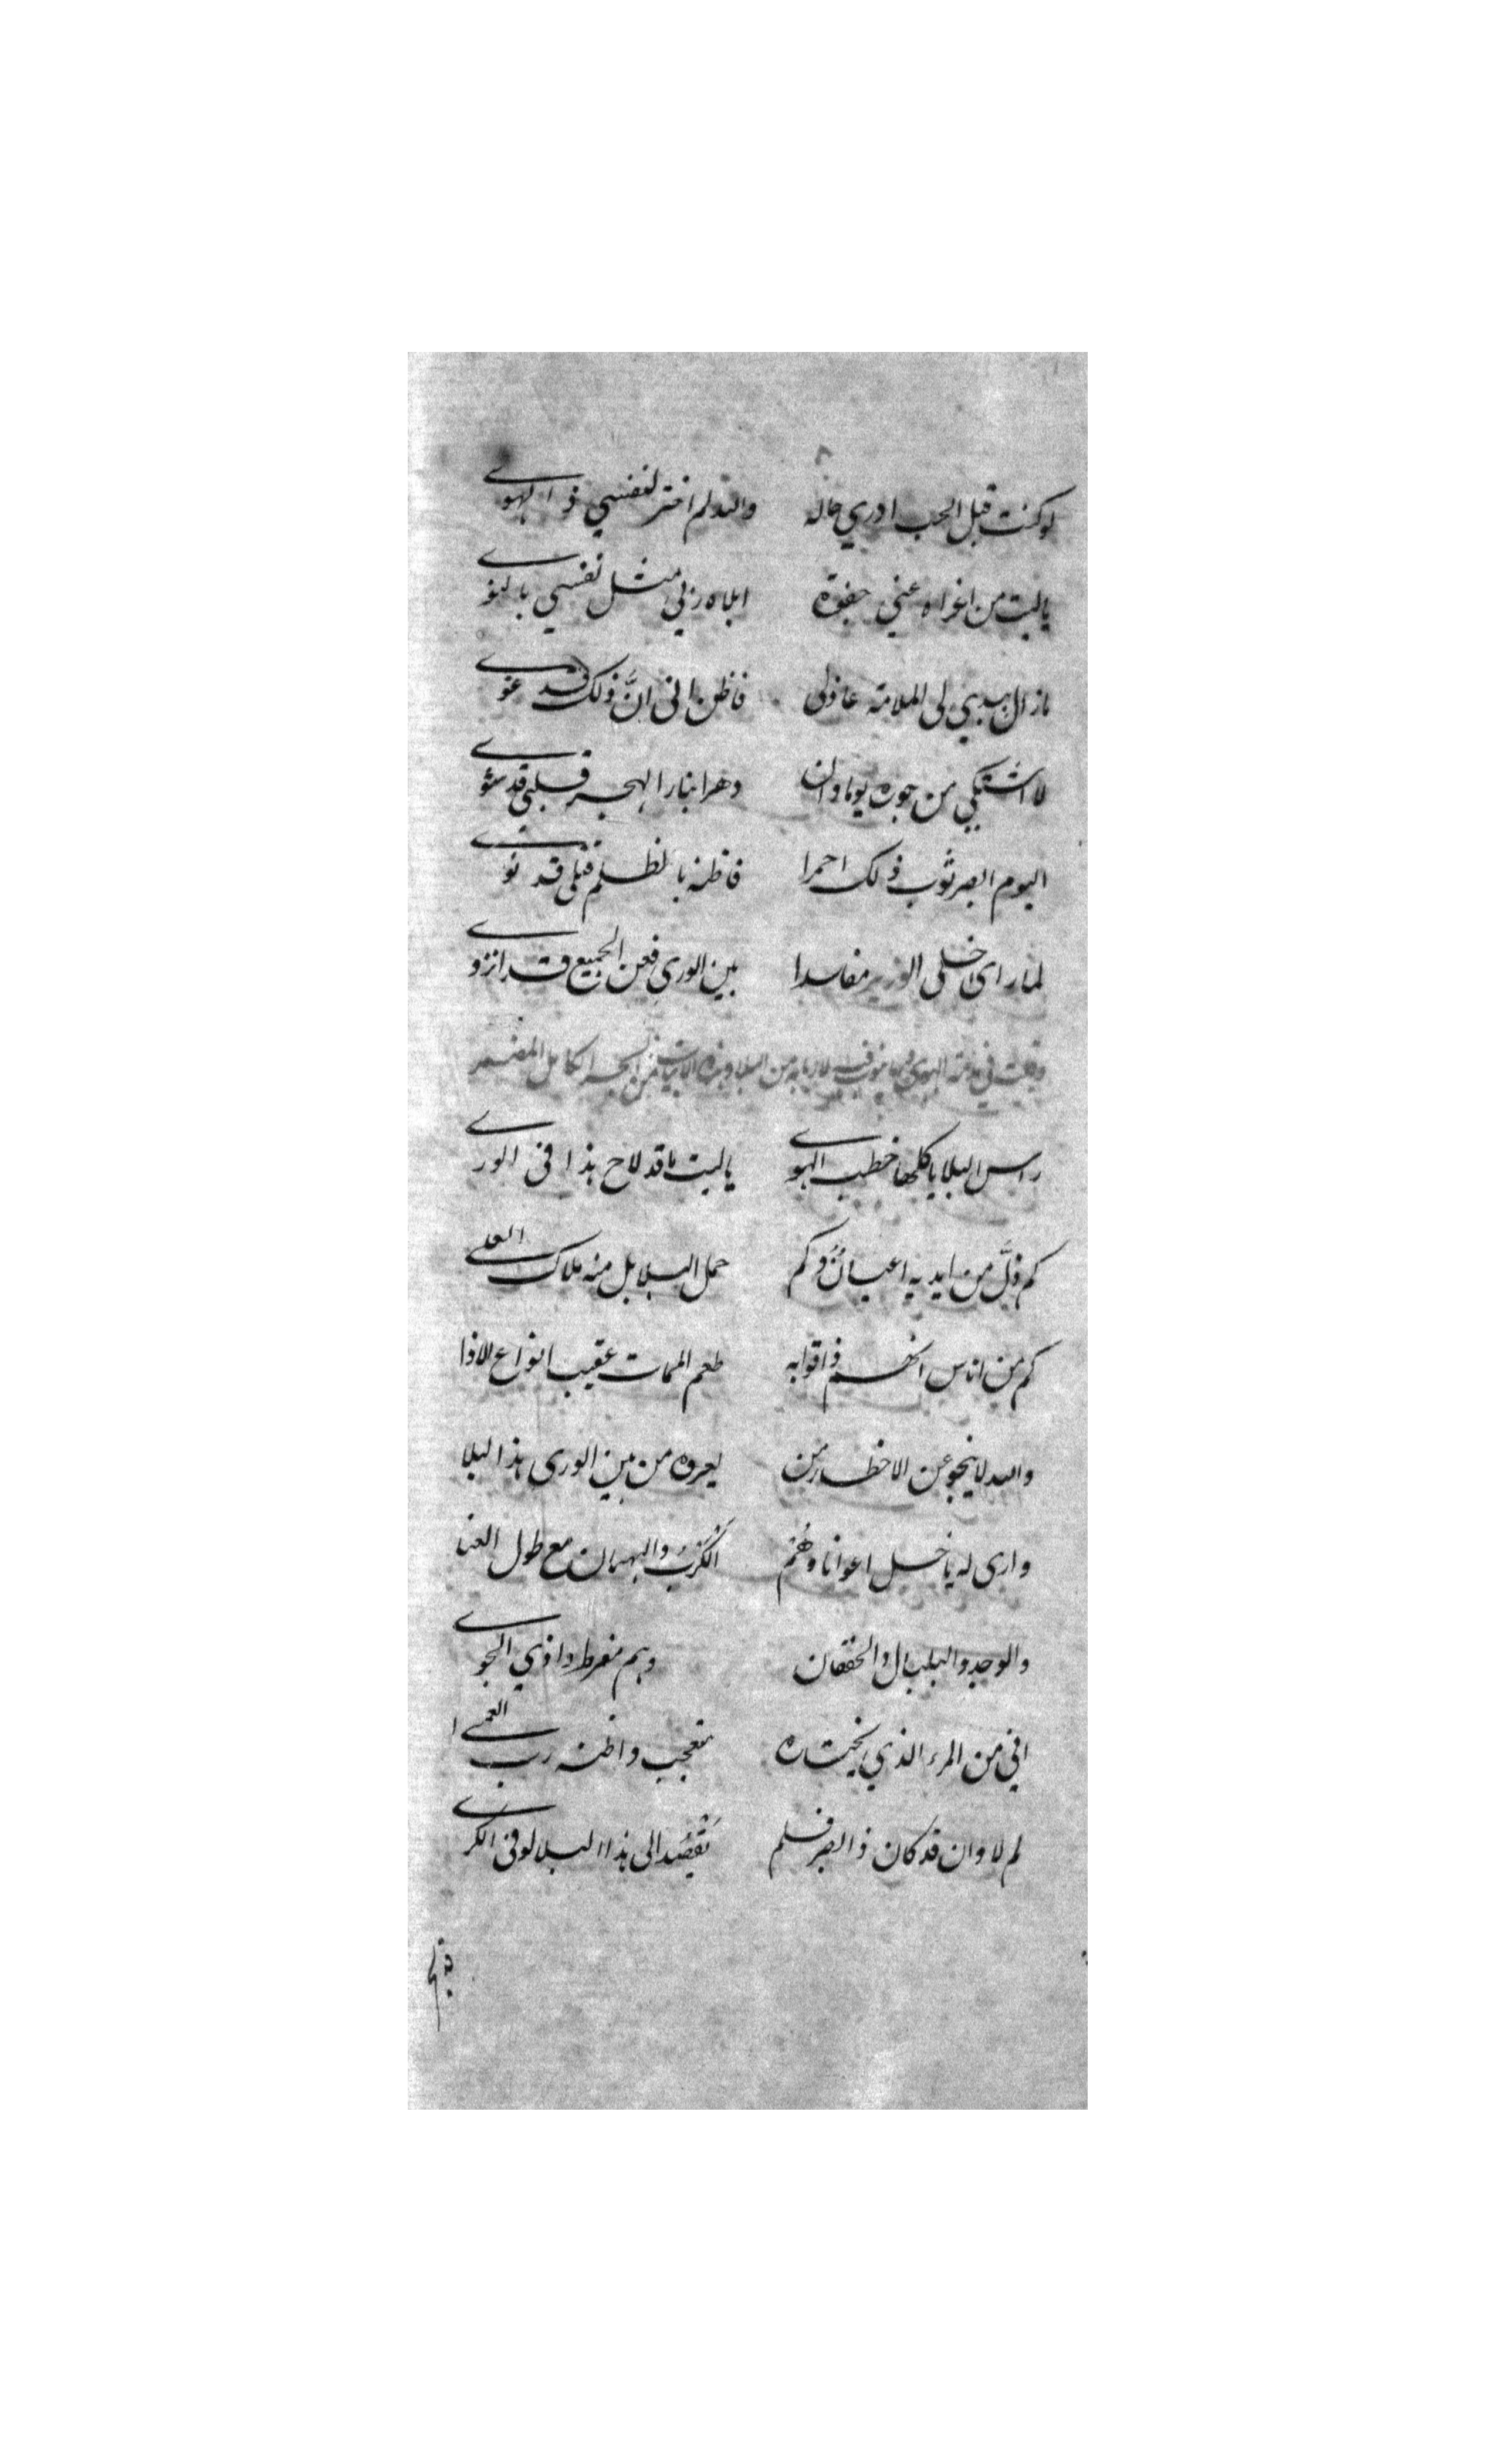 لو كنت قبل الحب ادري حاله والله لم اختر لنفسي ذو الهوى
ياليت من اغراه عني جفوة ابلاه ربي مثل نفسي بالنوى
مازال يهدي لى الملامة عاذلى فاظن انى انّ ذلك قد غوى
لا اشتكي من جوره يوما وان دهرا بنار الهجر قلبى قد شوى
اليوم ابصر ثوب ذلك احمرا فاظنه بالظلم قتلى قد نوى
لما راى خلى الوزير مفاسدا بين الورى فعن الجميع قد انزوى
وقلت فى مذمة الهوى وما فيه لاربابه من البلا وهذه الابيات من البحر الكامل المضمر
راس البلايا كلها خطب الهوى ياليت ما قد لاح هذا فى الورى
كم ذلّ من ايديه اعيانٌ وكم حمل البلابل منه ملاك العلى
كم من اناس انهم ذاقوا به طعم الممات عقيب انواع الاذا
والله لا ينجو عن الاخطار من يعروه من بين الورى هذا البلا
وارى له ياخل اعوانا وهُم الكَرْبُ والهيمان مع طول العنا
والوجد والبلبال والخفقان وهم مفرط واذي الجوى
انى من المرء الذي يختاره متعجب واظنه رب العمى
لم لا وان قد كان ذا البصر فلم يَقصُد الى هذا البلا لو فى الكرى